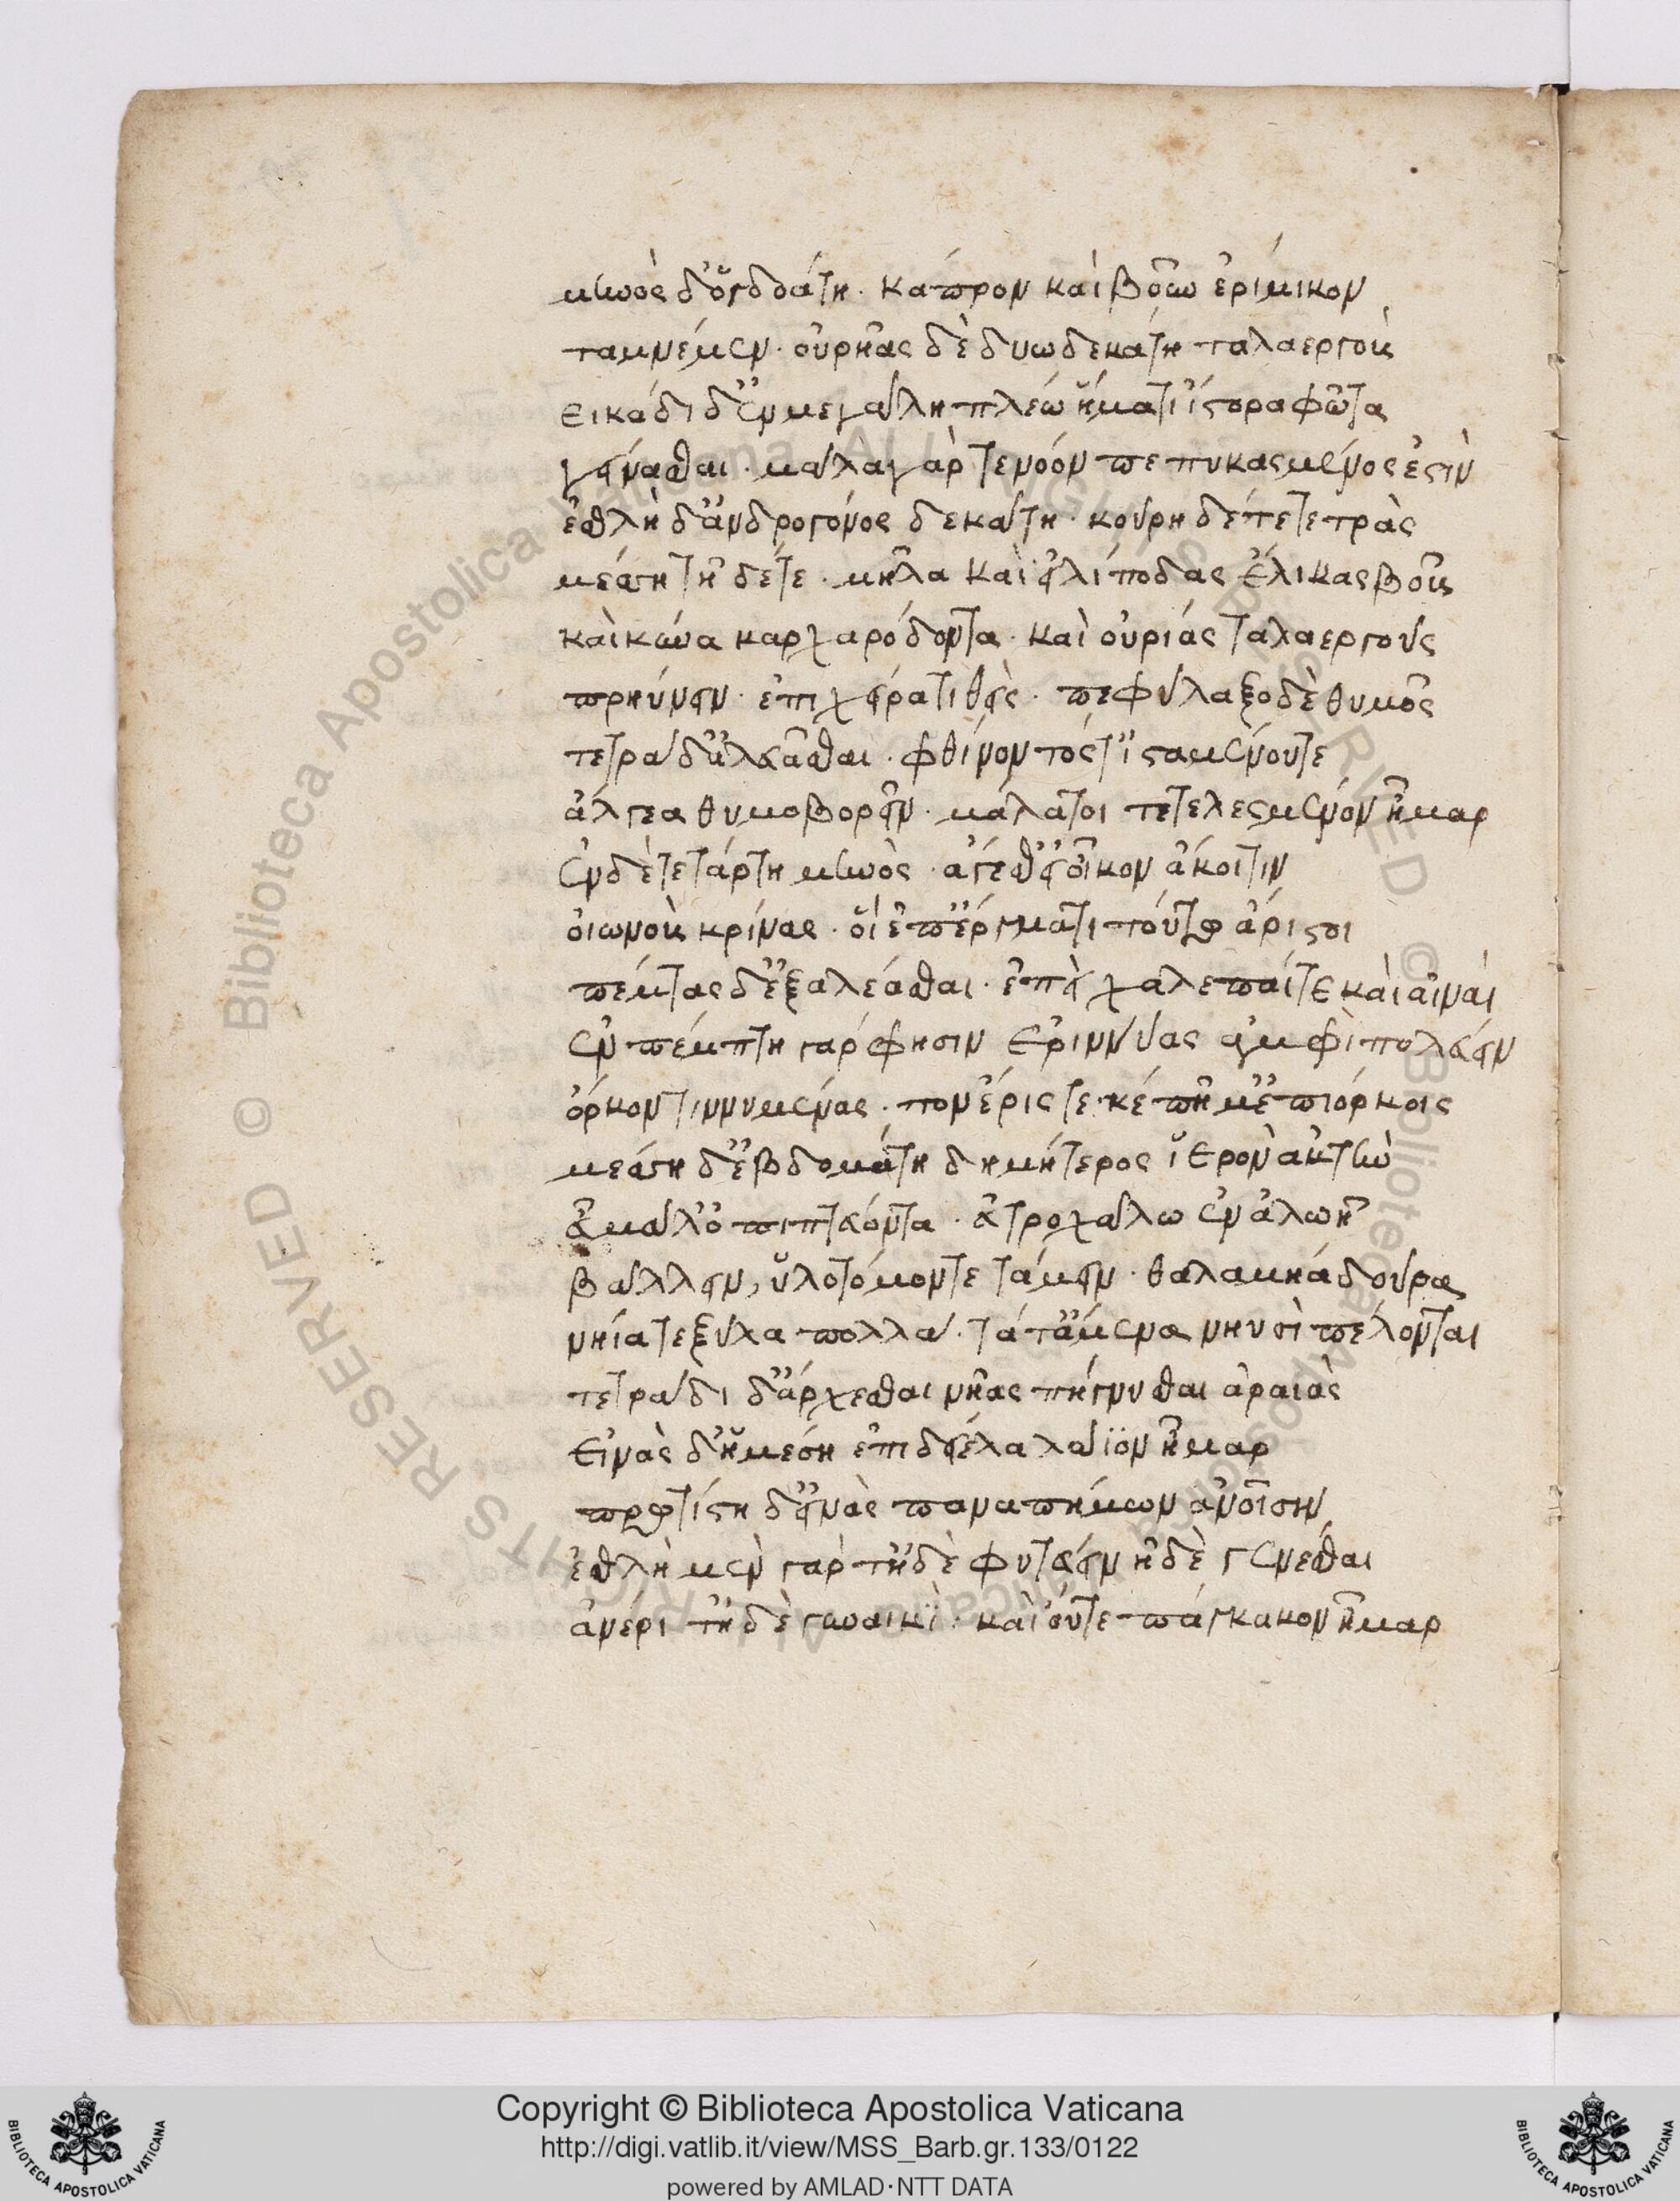 μηνὸς δ' ὀγδοάτη· κάπρον καὶ βοῦν ἐρίμικον
ταμνέμεν· οὐρῆας δὲ δυωδεκάτη ταλαεργούς
εἰκάδι δ' ἐν μεγάλη πλέω ἤματι ἵστορα φῶτα
γείνασθαι· μάλα γάρ τε νόον πεπυκασμένος ἐστὶν
ἐσθλὴ δ' ἀνδρογόνος δεκάτη· κούρη δέ τε τετρὰς
μέσση τῆ δέ τε· μῆλα καὶ εἰλίποδας ἕλικας βοῦς
καὶ κύνα καρχαρόδοντα· καὶ οὐριάς ταλαεργούς
πρηΰνειν· ἐπὶ χεῖρα τιθεὶς· πεφύλαξο δὲ θυμῶ
τετράδ' ἀλεύασθαι· φθίνοντός τ' ἱσταμένου τε
ἄλγεα θυμοβορεῖν· μάλα τοι τετελεσμένον ἦμαρ
ἐν δὲ τετάρτη μηνὸς· ἄγεσθ' εἰς οἶκον ἄκοιτιν
οἰωνοὺς κρίνας· οἳ ἐπ' ἔργματι τούτω ἄριστοι
πέμτας δ' ἐξαλέασθαι· ἐπεὶ χαλεπαί τε καὶ αἰναί
ἐν πέμπτη γάρ φησιν Ἐριννύας ἀμφιπολεύειν
ὅρκον τιννυμένας· τὸν ἔρις τέκε πῆμ' ἐπιόρκοις
μέσση δ' ἑβδομάτη δημήτερος ἱερὸν ἀκτὴν
εὖ μάλ' ὀπιπτεύοντα· εὐτροχάλω ἐν ἀλωῆ
βάλλειν, ὑλοτόμον τε τάμειν· θαλαμηά δοῦρα
νηία τε ξύλα πολλά· τά τ' ἄρμενα νηυσὶ πέλονται
τετράδι δ' ἄρχεσθαι νῆας πήγνυσθαι ἀραιὰς
εἰνὰς δ' ἡ μέση ἐπὶ δείελα λώϊον ἦμαρ
πρωτίστη δ' εἰνὰς παναπήμων ἀνοῖσιν
ἐσθλὴ μὲν γάρ τῆδε φυτεύειν ἠδὲ γενέσθαι
ἀνέρι τῆδε γυναικὶ· καὶ οὔτε πάγκακον ἦμαρ
Copyright © Biblioteca Apostolica Vaticana
http://digi.vatlib.it/view/MSS_Barb.gr.133/0122
powered by AMLAD·NTT DATA